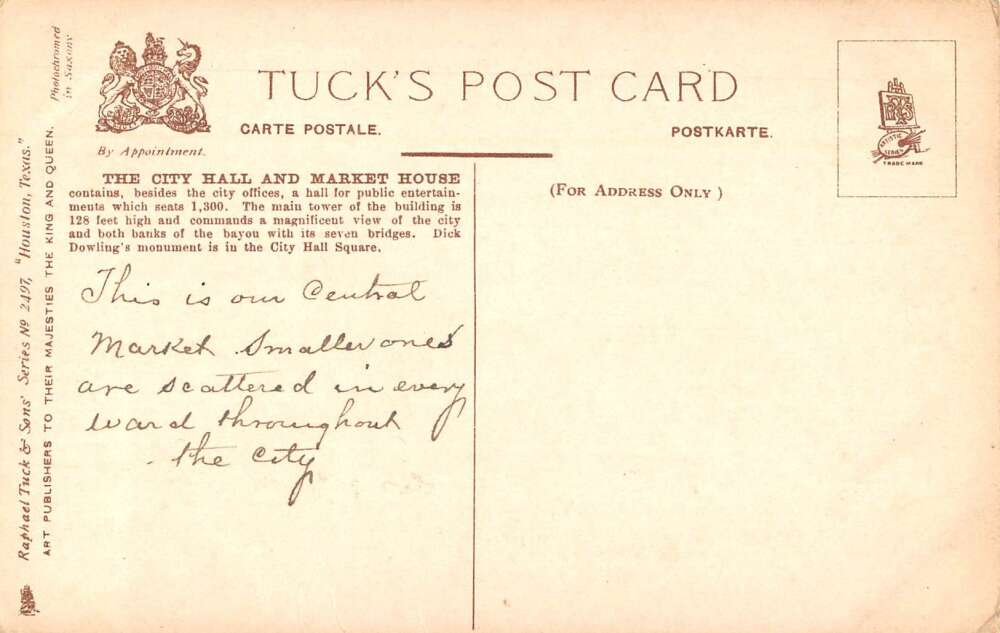 TUCK'S POST CARD
CARTE POSTALE.
POSTKARTE.
By Appointment.
(FOR ADDRESS ONLY)
THE CITY HALL AND MARKET HOUSE
contains, besides the city offices, a hall for public entertain-
ments which seats 1,300. The main tower of the building is
128 feet high and commands a magnificent view of the city
and both banks of the bayou with its seven bridges. Dick
Dowling's monument is in the City Hall Square.
This is our Central
Market Smaller ones
are scattered in every
ward throughout
the city
Raphael Tuck & Sons' Series No 2497, "Houston, Texas."
ART PUBLISHERS TO THEIR MAJESTIES THE KING AND QUEEN.
Photochromed
in Saxony
ARTISTIC
SERIES
TRADE MARK